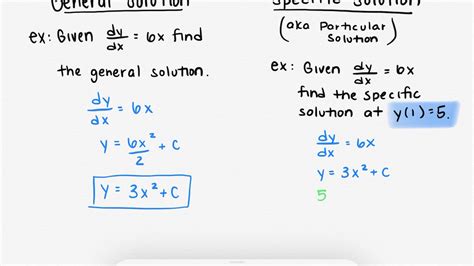 General Solution
ex: Given dy/dx = 6x find
the general solution.
dy/dx = 6x
y = 6x²/2 + C
y = 3x² + C
Specific Solution
(aka Particular
Solution)
ex: Given dy/dx = 6x
find the specific
solution at y(1) = 5.
dy/dx = 6x
y = 3x² + C
5